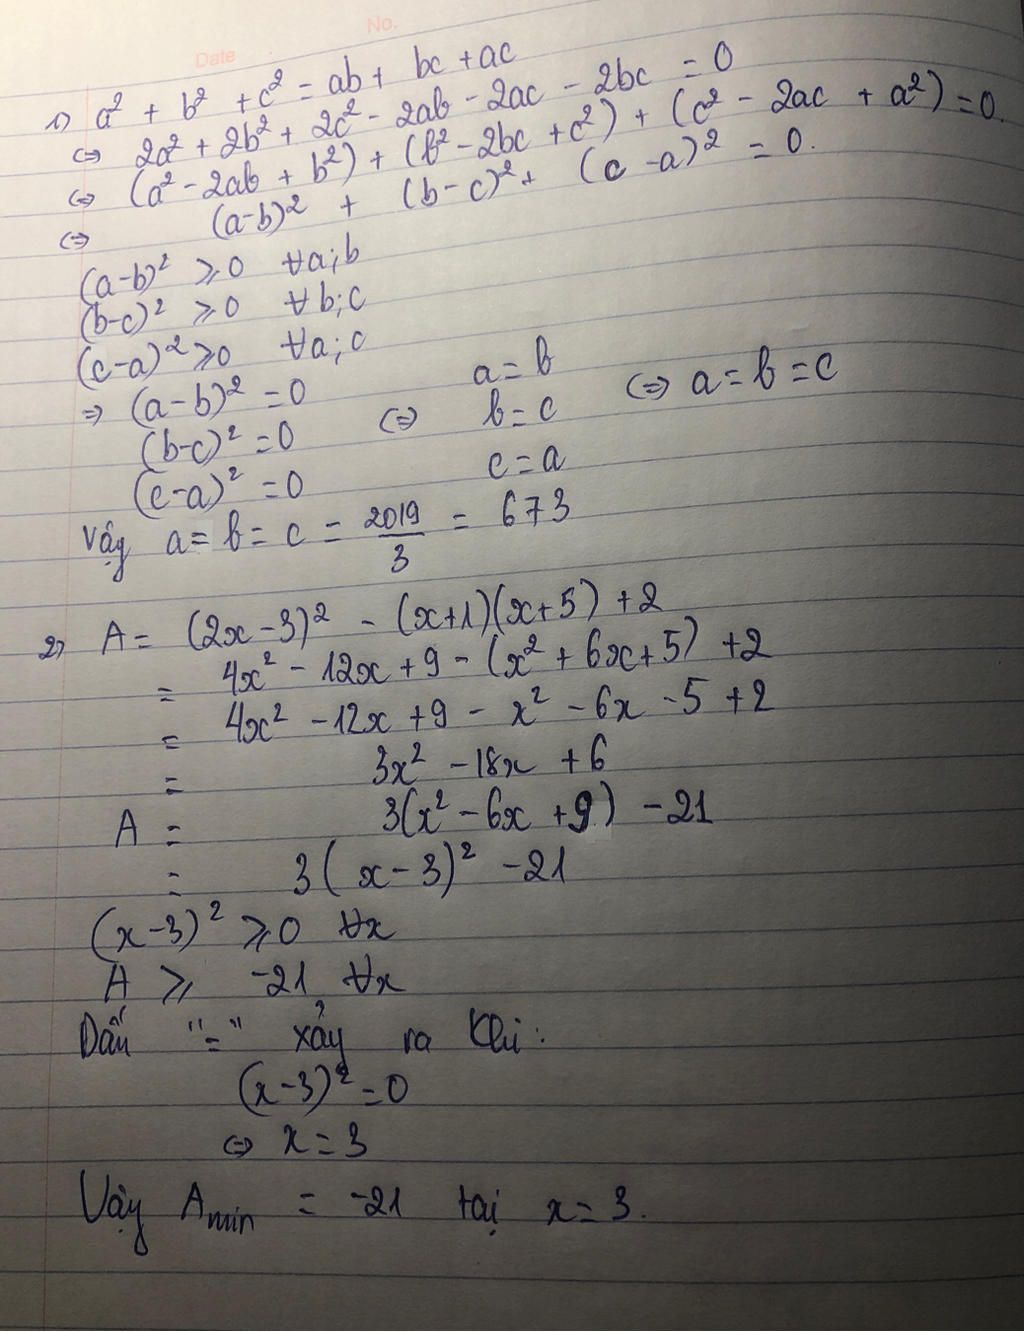 No.
Date
1) a² + b² + c² = ab + bc + ac
⇔ 2a² + 2b² + 2c² - 2ab - 2ac - 2bc = 0
⇔ (a² - 2ab + b²) + (b² - 2bc + c²) + (c² - 2ac + a²) = 0.
⇔ (a-b)² + (b-c)² + (c-a)² = 0.
(a-b)² ⩾ 0 ∀a;b
(b-c)² ⩾ 0 ∀b;c
(c-a)² ⩾ 0 ∀a;c
⇒ (a-b)² = 0 a = b
(b-c)² = 0 ⇔ b = c ⇔ a = b = c
(c-a)² = 0 c = a
Vậy a = b = c = 2019/3 = 673
2) A = (2x-3)² - (x+1)(x+5) + 2
= 4x² - 12x + 9 - (x² + 6x + 5) + 2
= 4x² - 12x + 9 - x² - 6x - 5 + 2
= 3x² - 18x + 6
A = 3(x² - 6x + 9) - 21
= 3(x-3)² - 21
(x-3)² ⩾ 0 ∀x
A ⩾ -21 ∀x
Dấu "=" xảy ra khi:
(x-3)² = 0
⇔ x = 3
Vậy Amin = -21 tại x = 3.